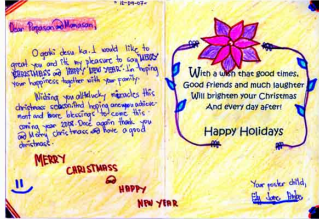 12-09-07
Dear Papasan and Mamasan,
O genki desu ka. I would like to
great you and it's my pleasure to say MERRY
CHRISTMASS and HAPPY NEW YEAR. I'm hoping
your happiness together with your family.
Wishing you all lucky miracles this
christmas season and hoping
ment and more blessings to come this
coming year 2008. Once again thank you
and Merry christmass and have a good
christmast.
MERRY
CHRISTMASS
and
HAPPY
NEW YEAR
With a wish that good times,
Good friends and much laughter
Will brighten your Christmas
And every day after!
Happy Holidays
Your foster child,